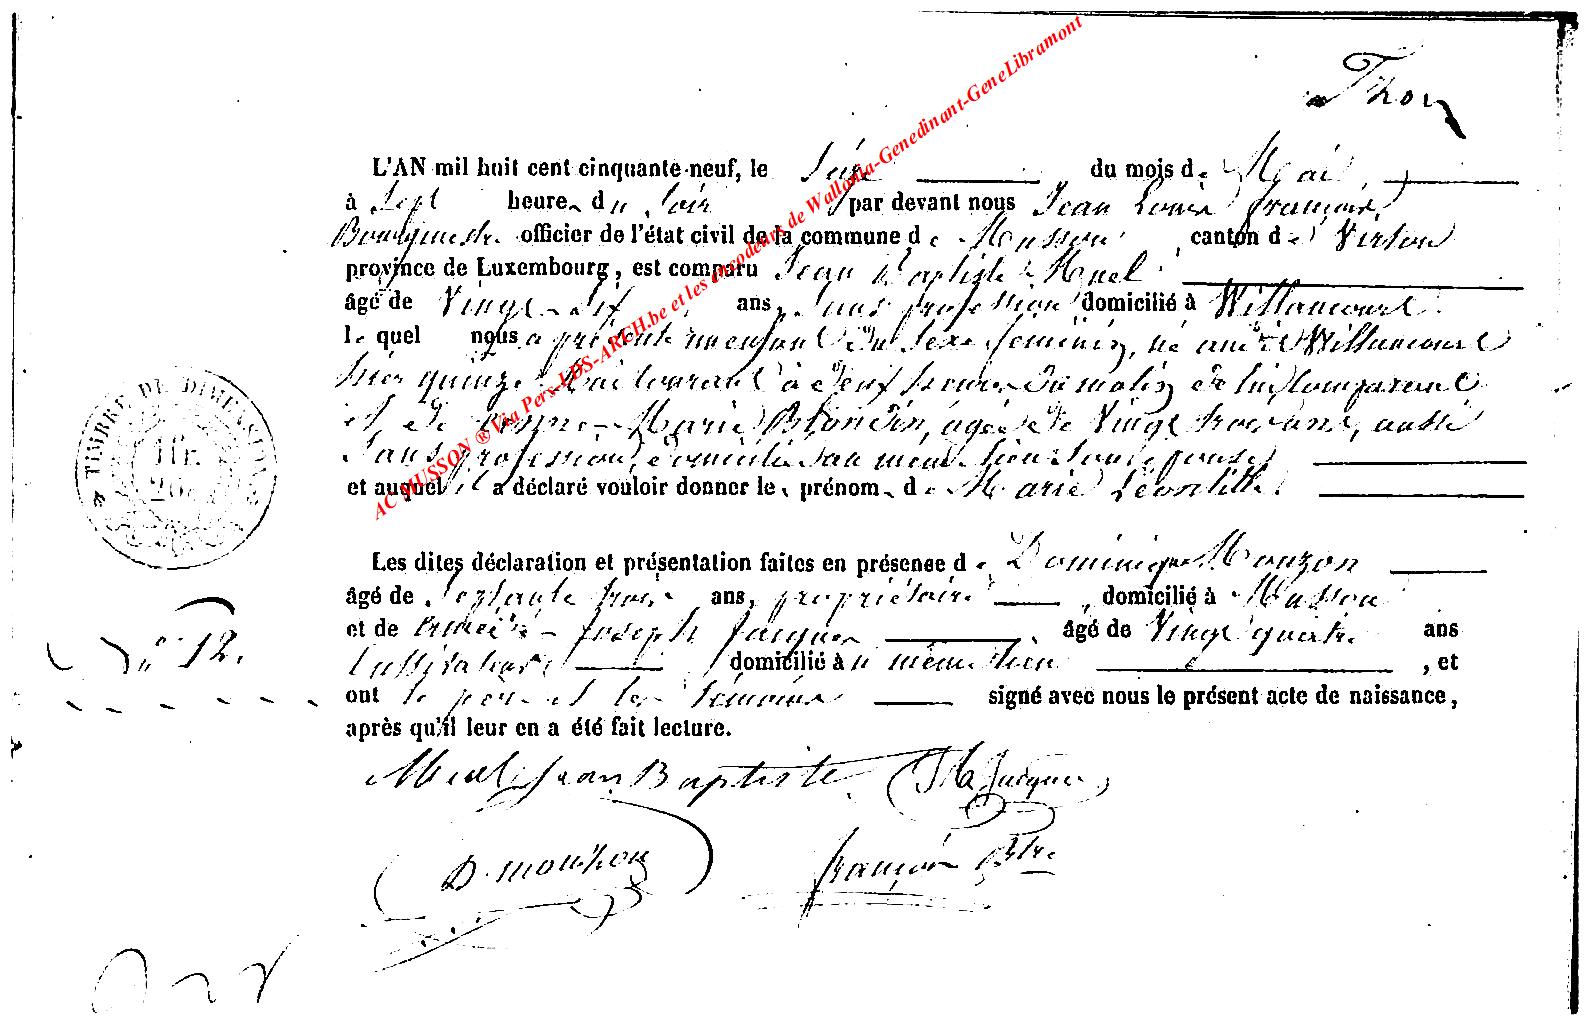 Thon
L'AN mil huit cent cinquante-neuf, le Seize du mois de Mai,
à Sept heures du Soir par devant nous Jean Louis François,
Bourgmestre officier de l'état civil de la commune de Musson canton de Virton
province de Luxembourg, est comparu Jean Baptiste
âgé de Vingt-Six ans, Sans profession domicilié à Willancourt
lequel nous a présenté un enfant du Sexe féminin, né audit Willancourt
hier quinze Mai courant à neuf heures du matin de lui Comparant
et de Marie Blondin, agée de Vingt trois ans, aussi
Sans profession, domiciliée au même lieu Son épouse,
et auquel il a déclaré vouloir donner les prénoms de Marie Léontille.
Les dites déclaration et présentation faites en présence de Dominique Mouzon
âgé de Septante trois ans, propriétaire, domicilié à Musson
et de Joseph Jacques, âgé de Vingt quatre ans
Cultivateur domicilié au même lieu, et
ont le père et les témoins signé avec nous le présent acte de naissance,
après qu'il leur en a été fait lecture.
TIMBRE DE DIMENSION
1 fr.
20 c.
N° 12.
Jean Baptiste Jacques
D. mouzon françois Bstre
AC MUSSON ® Via Pers-LDS-ARCH.be et les encodeurs de Wallonia-Genedinant-GeneLibramont